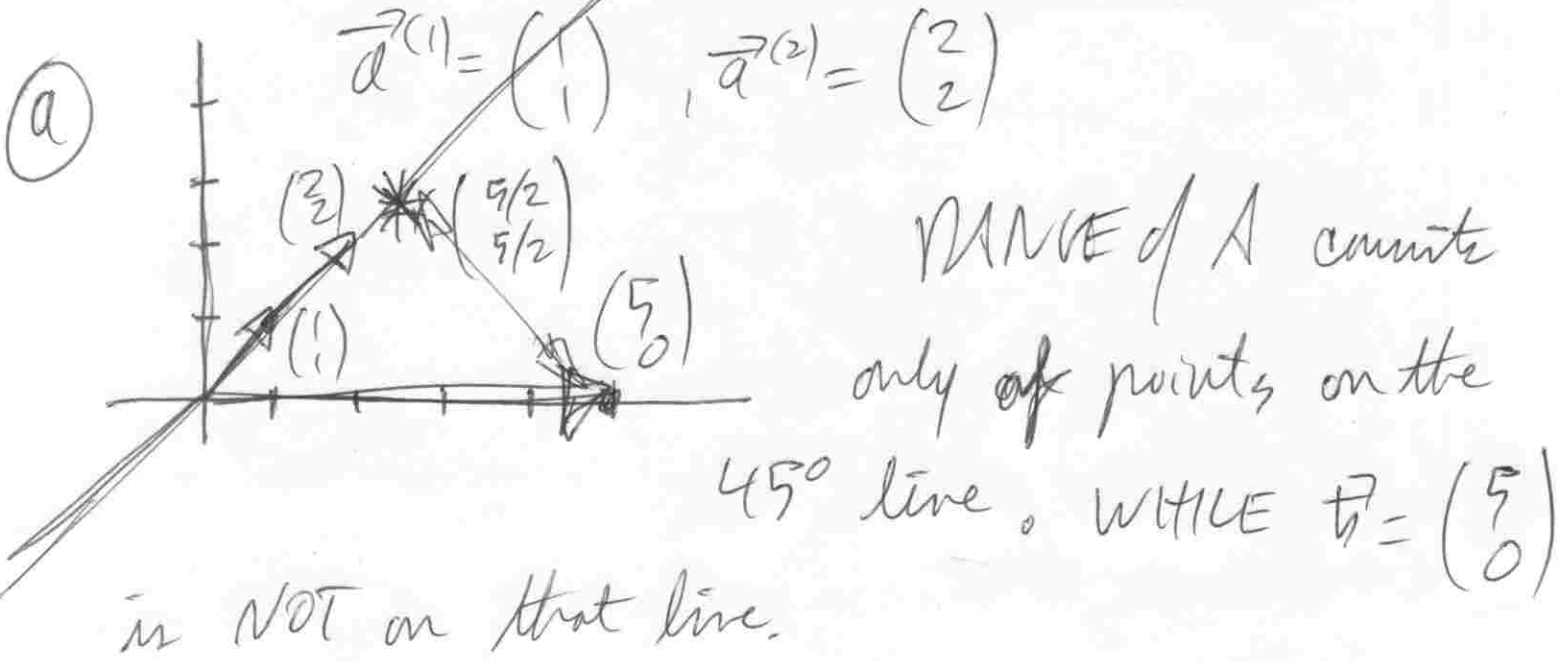 a⃗⁽¹⁾ = (1 1) , a⃗⁽²⁾ = (2 2)
(a)
(2 2)
(5/2 5/2)
(1 1)
(5 0)
RANGE of A consists
only of points on the
45° line. WHILE b⃗ = (5 0)
is NOT on that line.